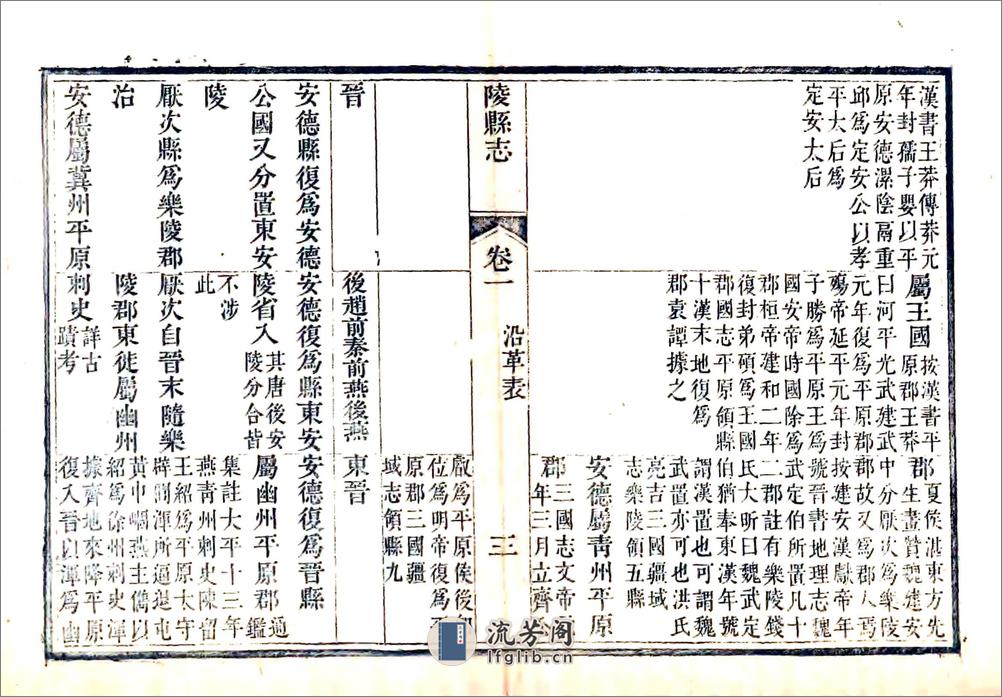 漢書王莽傳莽元
年封孺子嬰以平
原安德漯陰鬲重
邱爲定安公以孝
平太后爲
定安太后
屬王國
按漢書平
原郡王莽
曰河平光武建武
元年復爲平原郡
殤帝延平元年封
子勝爲平原王爲
國安帝時國除爲
郡桓帝建和二年
復封弟碩爲王國
郡國志平原領縣
十漢末地復爲
郡袁譚據之
郡
夏侯湛東方先
生畫贊魏建安
中分厭次爲樂陵
郡故又爲郡人焉
按建安漢獻帝年
號晉書地理志魏
武定伯所置凡十
二郡註有樂陵錢
氏大昕曰魏武定
伯猶奉東漢年號
謂漢置也可謂魏
武置亦可也洪氏
亮吉三國疆域
志樂陵領五縣
安德屬青州平原
郡
三國志文帝
年三月立齊公
叡爲平原侯後卽
位爲明帝復爲平
原郡三國疆
域志領縣九
陵縣志
卷一
沿革表
三
晉
後趙前秦前燕後燕
東晉
安德縣復爲安德
公國又分置東安
陵
厭次縣爲樂陵郡
治
安德屬冀州平原
安德復爲縣東安
陵省入
其唐後安
陵分合皆
不涉
此
厭次自晉末隨樂
陵郡東徙屬幽州
刺史
詳古
蹟考
安德復爲晉縣
屬幽州平原郡
通
鑑
集註大平十三年
燕青州刺史陳留
王紹爲平原太守
辟閭渾所逼退屯
黃巾嵎燕主儁以
紹爲徐州刺史渾
據齊地來降平原
復入晉以渾爲幽
流芳阁
lfglib.cn